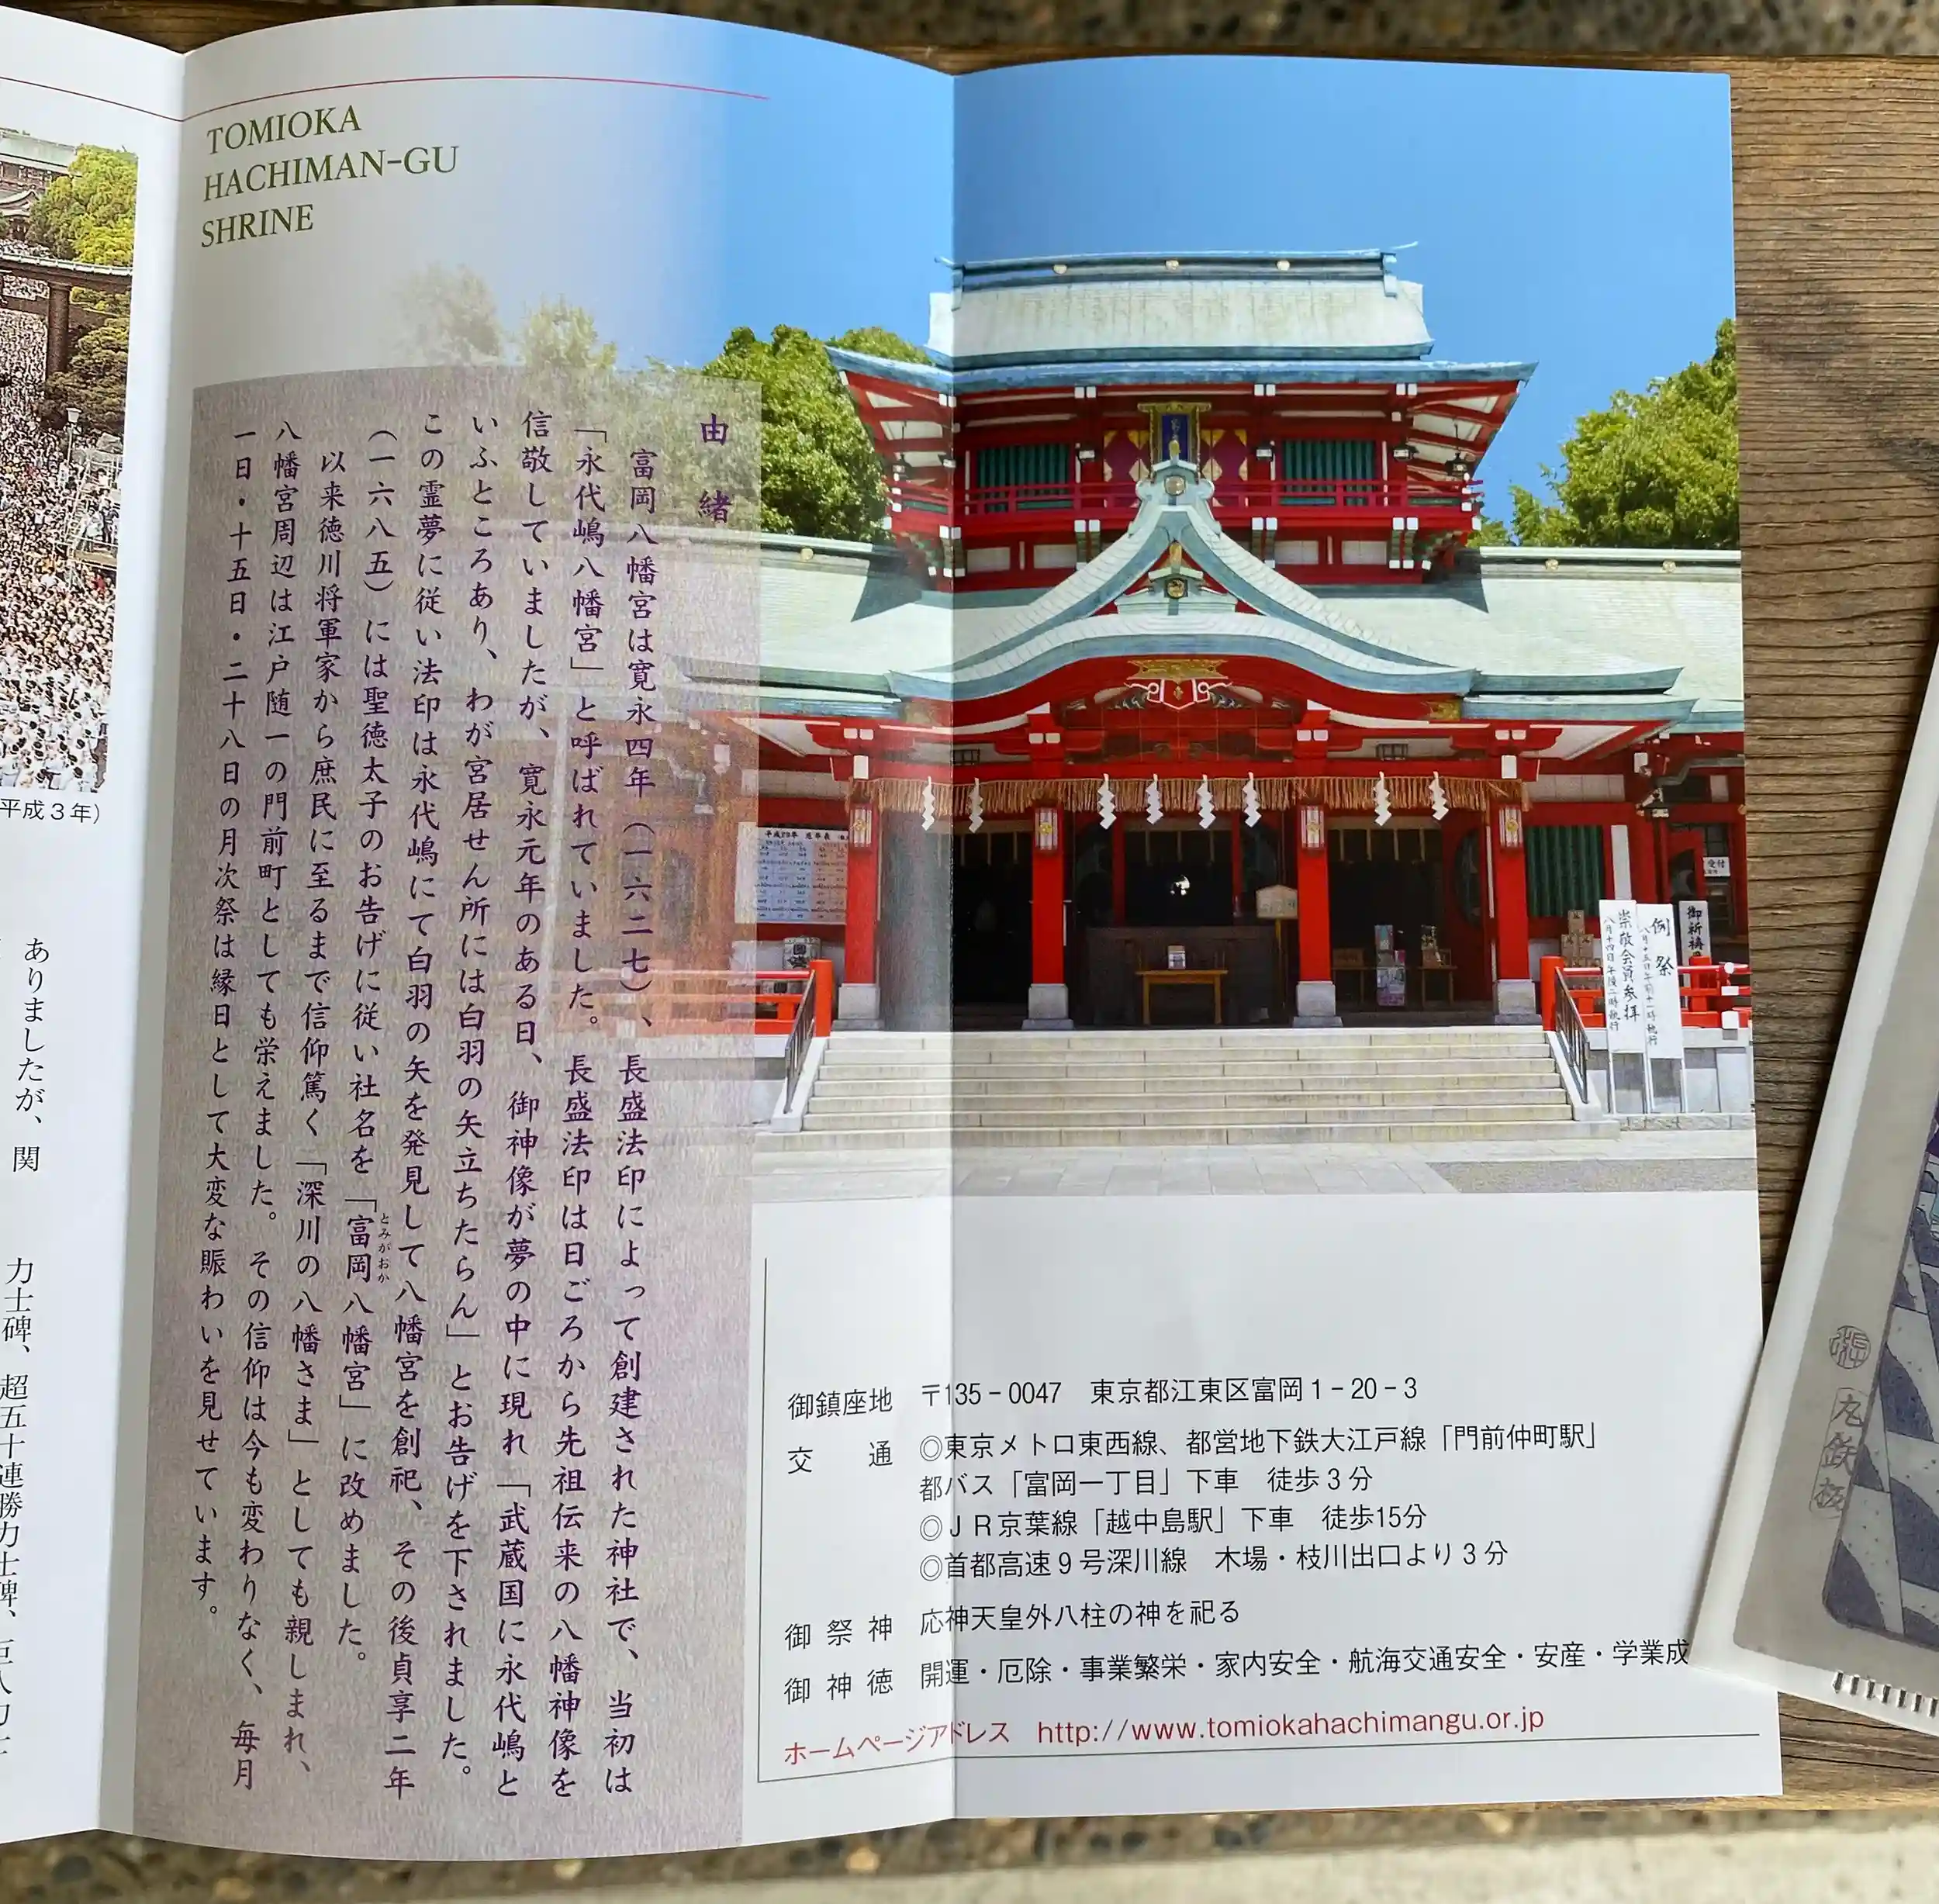 TOMIOKA
HACHIMAN-GU
SHRINE
由緒
富岡八幡宮は寛永四年（一六二七）、長盛法印によって創建された神社で、当初は
「永代嶋八幡宮」と呼ばれていました。長盛法印は日ごろから先祖伝来の八幡神像を
信敬していましたが、寛永元年のある日、御神像が夢の中に現れ「武蔵国に永代嶋と
いふところあり、わが宮居せん所には白羽の矢立ちたらん」とお告げを下されました。
この霊夢に従い法印は永代嶋にて白羽の矢を発見して八幡宮を創祀、その後貞享二年
（一六八五）には聖徳太子のお告げに従い社名を「富岡八幡宮」に改めました。
とみがおか
以来徳川将軍家から庶民に至るまで信仰篤く「深川の八幡さま」としても親しまれ、
八幡宮周辺は江戸随一の門前町としても栄えました。その信仰は今も変わりなく、毎月
一日・十五日・二十八日の月次祭は縁日として大変な賑わいを見せています。
平成3年）
ありましたが、関
力士碑、超五十連勝力士碑、巨人力士
例祭
崇敬会員参拝
八月十四日午後二時執行
御祈祷
受付
御鎮座地 〒135-0047 東京都江東区富岡1-20-3
交通 ◎東京メトロ東西線、都営地下鉄大江戸線「門前仲町駅」
都バス「富岡一丁目」下車 徒歩3分
◎ＪＲ京葉線「越中島駅」下車 徒歩15分
◎首都高速9号深川線 木場・枝川出口より3分
御祭神 応神天皇外八柱の神を祀る
御神徳 開運・厄除・事業繁栄・家内安全・航海交通安全・安産・学業成
ホームページアドレス http://www.tomiokahachimangu.or.jp